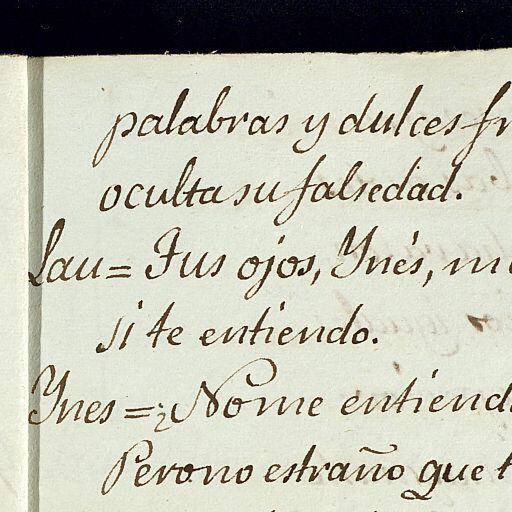 palabras y dulces fr
oculta su falsedad.
Lau= Tus ojos, Ynés, m
si te entiendo.
Ynes=¿No me entiend
Pero no estraño que t